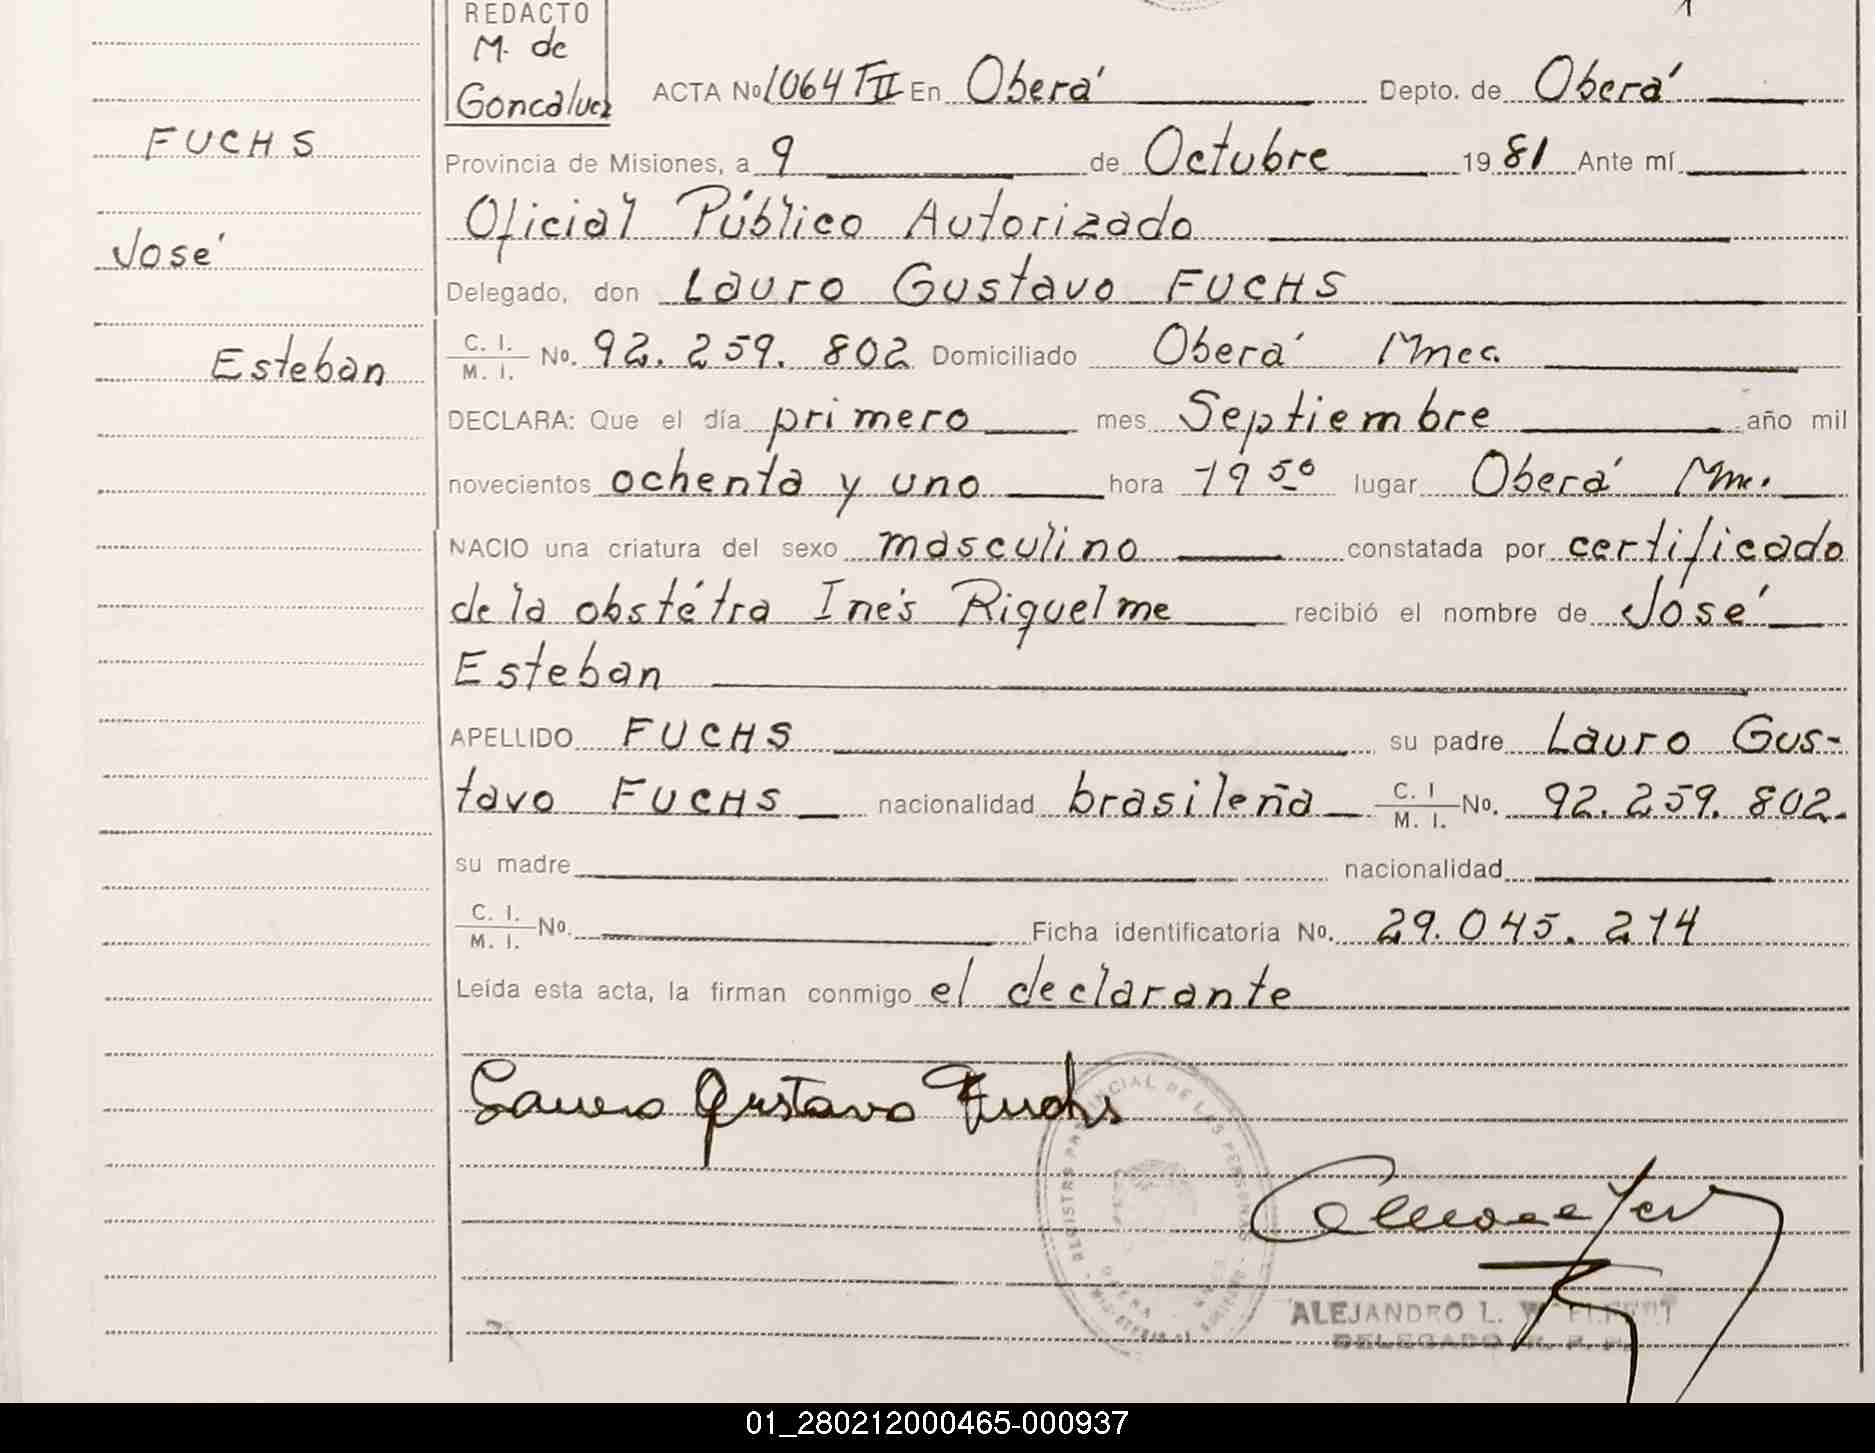 REDACTO
M. de
Goncalvez
FUCHS
José
Esteban
ACTA No 1064 TII En Oberá Depto. de Oberá
Provincia de Misiones, a 9 de Octubre 19 81 Ante mí
Oficial Público Autorizado
Delegado, don Lauro Gustavo FUCHS
C. I. / M. I. No. 92.259.802 Domiciliado Oberá Mnes.
DECLARA: Que el día primero mes Septiembre año mil
novecientos ochenta y uno hora 19 50 lugar Oberá Mnes.
NACIO una criatura del sexo masculino constatada por certificado
de la obstétra Inés Riquelme recibió el nombre de José
Esteban
APELLIDO FUCHS su padre Lauro Gus-
tavo FUCHS nacionalidad brasileña C. I / M. I. No. 92.259.802.
su madre nacionalidad
C. I. / M. I. No. Ficha identificatoria No. 29.045.214
Leída esta acta, la firman conmigo el declarante
Lauro Gustavo Fuchs
REGISTRO PROVINCIAL DE LAS PERSONAS
OBERA
ALEJANDRO L.
DELEGADO R. P. P.
01_280212000465-000937